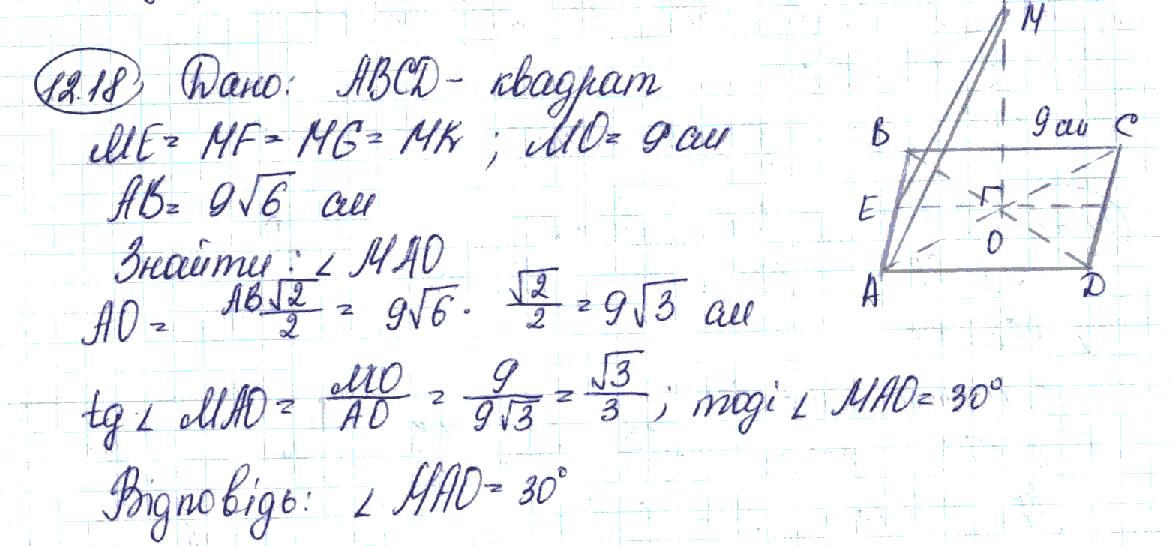 12.18 Дано: ABCD - квадрат
ME = MF = MG = MK ; MO = 9 см
AB = 9√6 см
Знайти: ∠ MAO
AO = AB√2/2 = 9√6 · √2/2 = 9√3 см
tg ∠ MAO = MO/AO = 9/9√3 = √3/3 ; тоді ∠ MAO = 30°
Відповідь: ∠ MAO = 30°
M
B
9 см
C
E
O
A
D